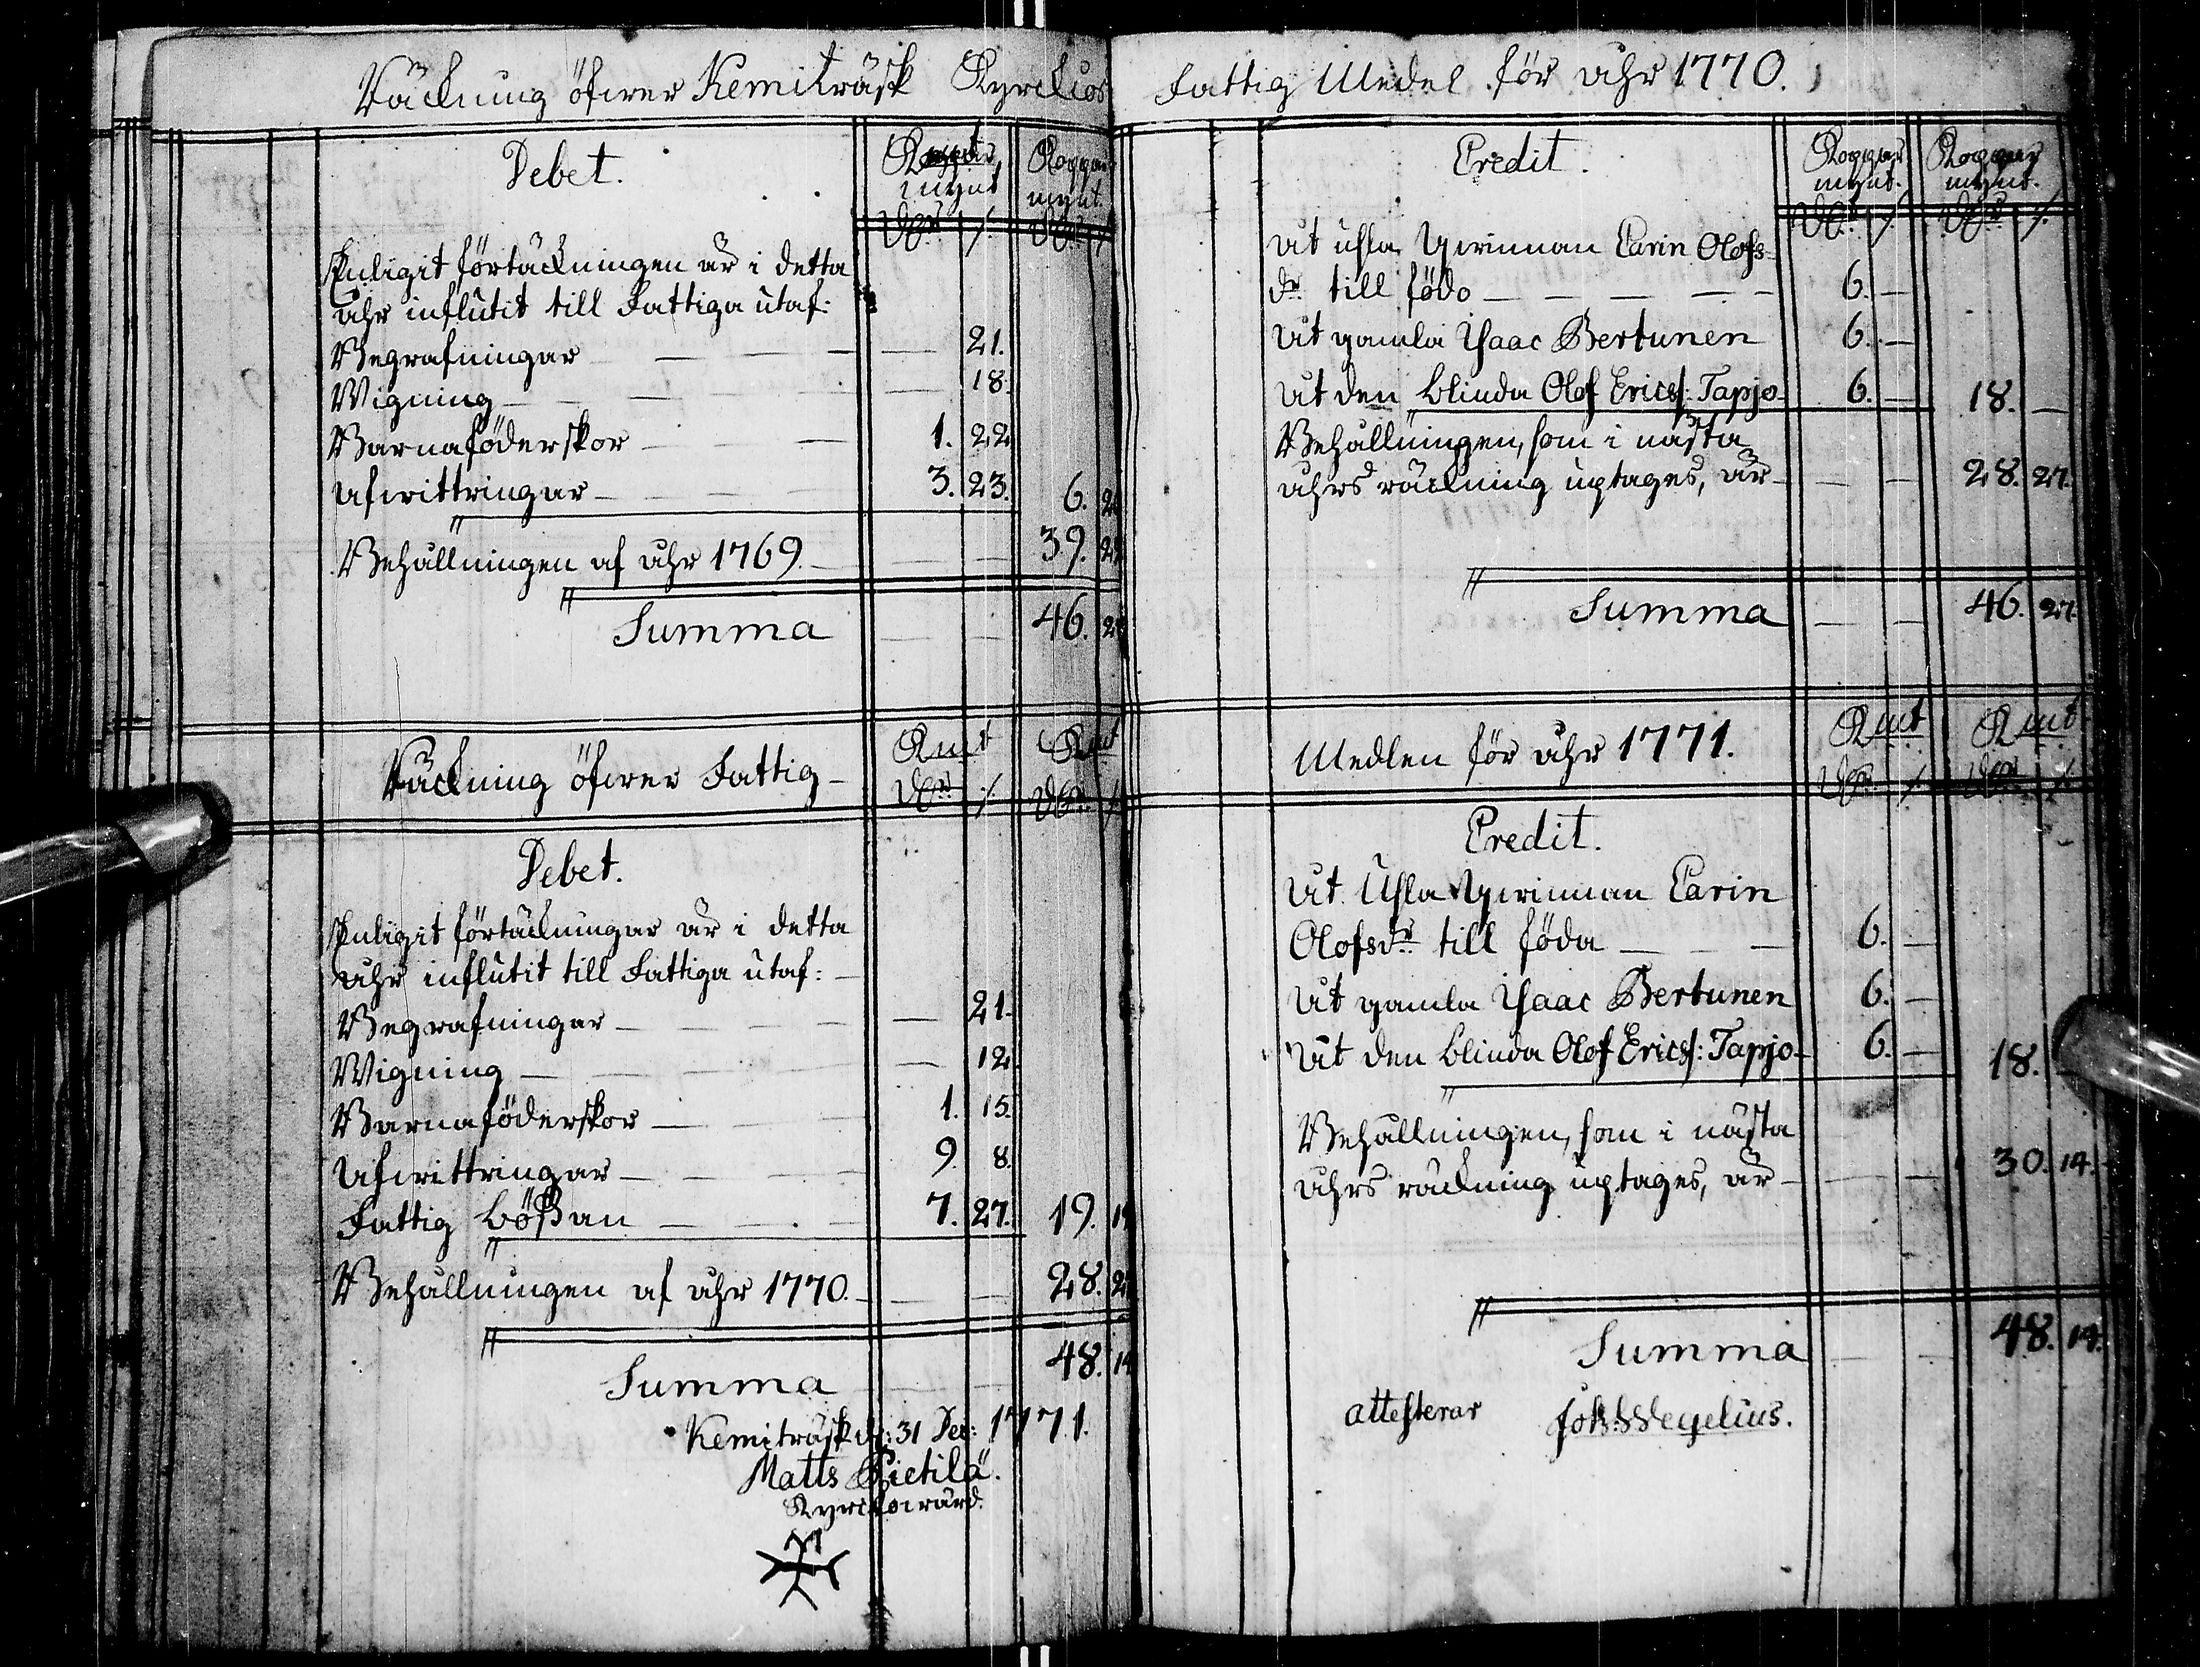 Räckning öfwer Kemiträsk Kyrckios Fattig Medel för åhr 1770.
Debet.
Koppar mynt Koppar mynt.
Dlr /. Dlr /.
Enligit förtäckningen är i detta
åhr inflütit till Fattiga utaf:
Begrafningar — — — 21.
Wigning — — — 18.
Barnaföderskor — — 1. 22
Afwittringar — — — 3. 23. 6.
Behållningen af åhr 1769. — — 39.
Summa — — 46.
Credit.
Koppar mynt. Koppar mynt.
Dlr /. Dlr /.
Åt usla Qwinnan Carin Olofs-
dr till födo — — — 6. —
Åt gamla Isaac Bertunen 6. —
Åt den blinda Olof Ericss: Tapjo 6. — 18. —
Behållningen, som i nästa
åhrs räckning uptages, är — — 28. 27.
Summa — — 46. 27.
Räckning öfwer Fattig- Medlen för åhr 1771.
Kmt Kmt
Dlr /. Dlr /.
Kmt Kmt
Dlr /. Dlr /.
Debet.
Enligit förtäckningar är i detta
åhr inflütit till Fattiga utaf: —
Begrafningar — — — 21.
Wigning — — — 12
Barnaföderskor — — 1. 15.
Afwittringar — — — 9. 8.
Fattig bößan — — — 7. 27. 19.
Behållningen af åhr 1770. — — 28.
Summa — — 48.
Kemiträsk d: 31 Dec: 1771.
Matts Pietilä.
Kyrckiowärd.
Credit.
Åt Usla Qwinnan Carin
Olofsdr till föda — — 6. —
Åt gamla Isaac Bertunen 6. —
Åt den blinda Olof Ericss: Tapjo — 6. — 18.
Behållningen, som i nästa
åhrs räckning uptages, är — — 30. 14.
Summa — — 48. 14.
attesterar Joh: Wegelius.